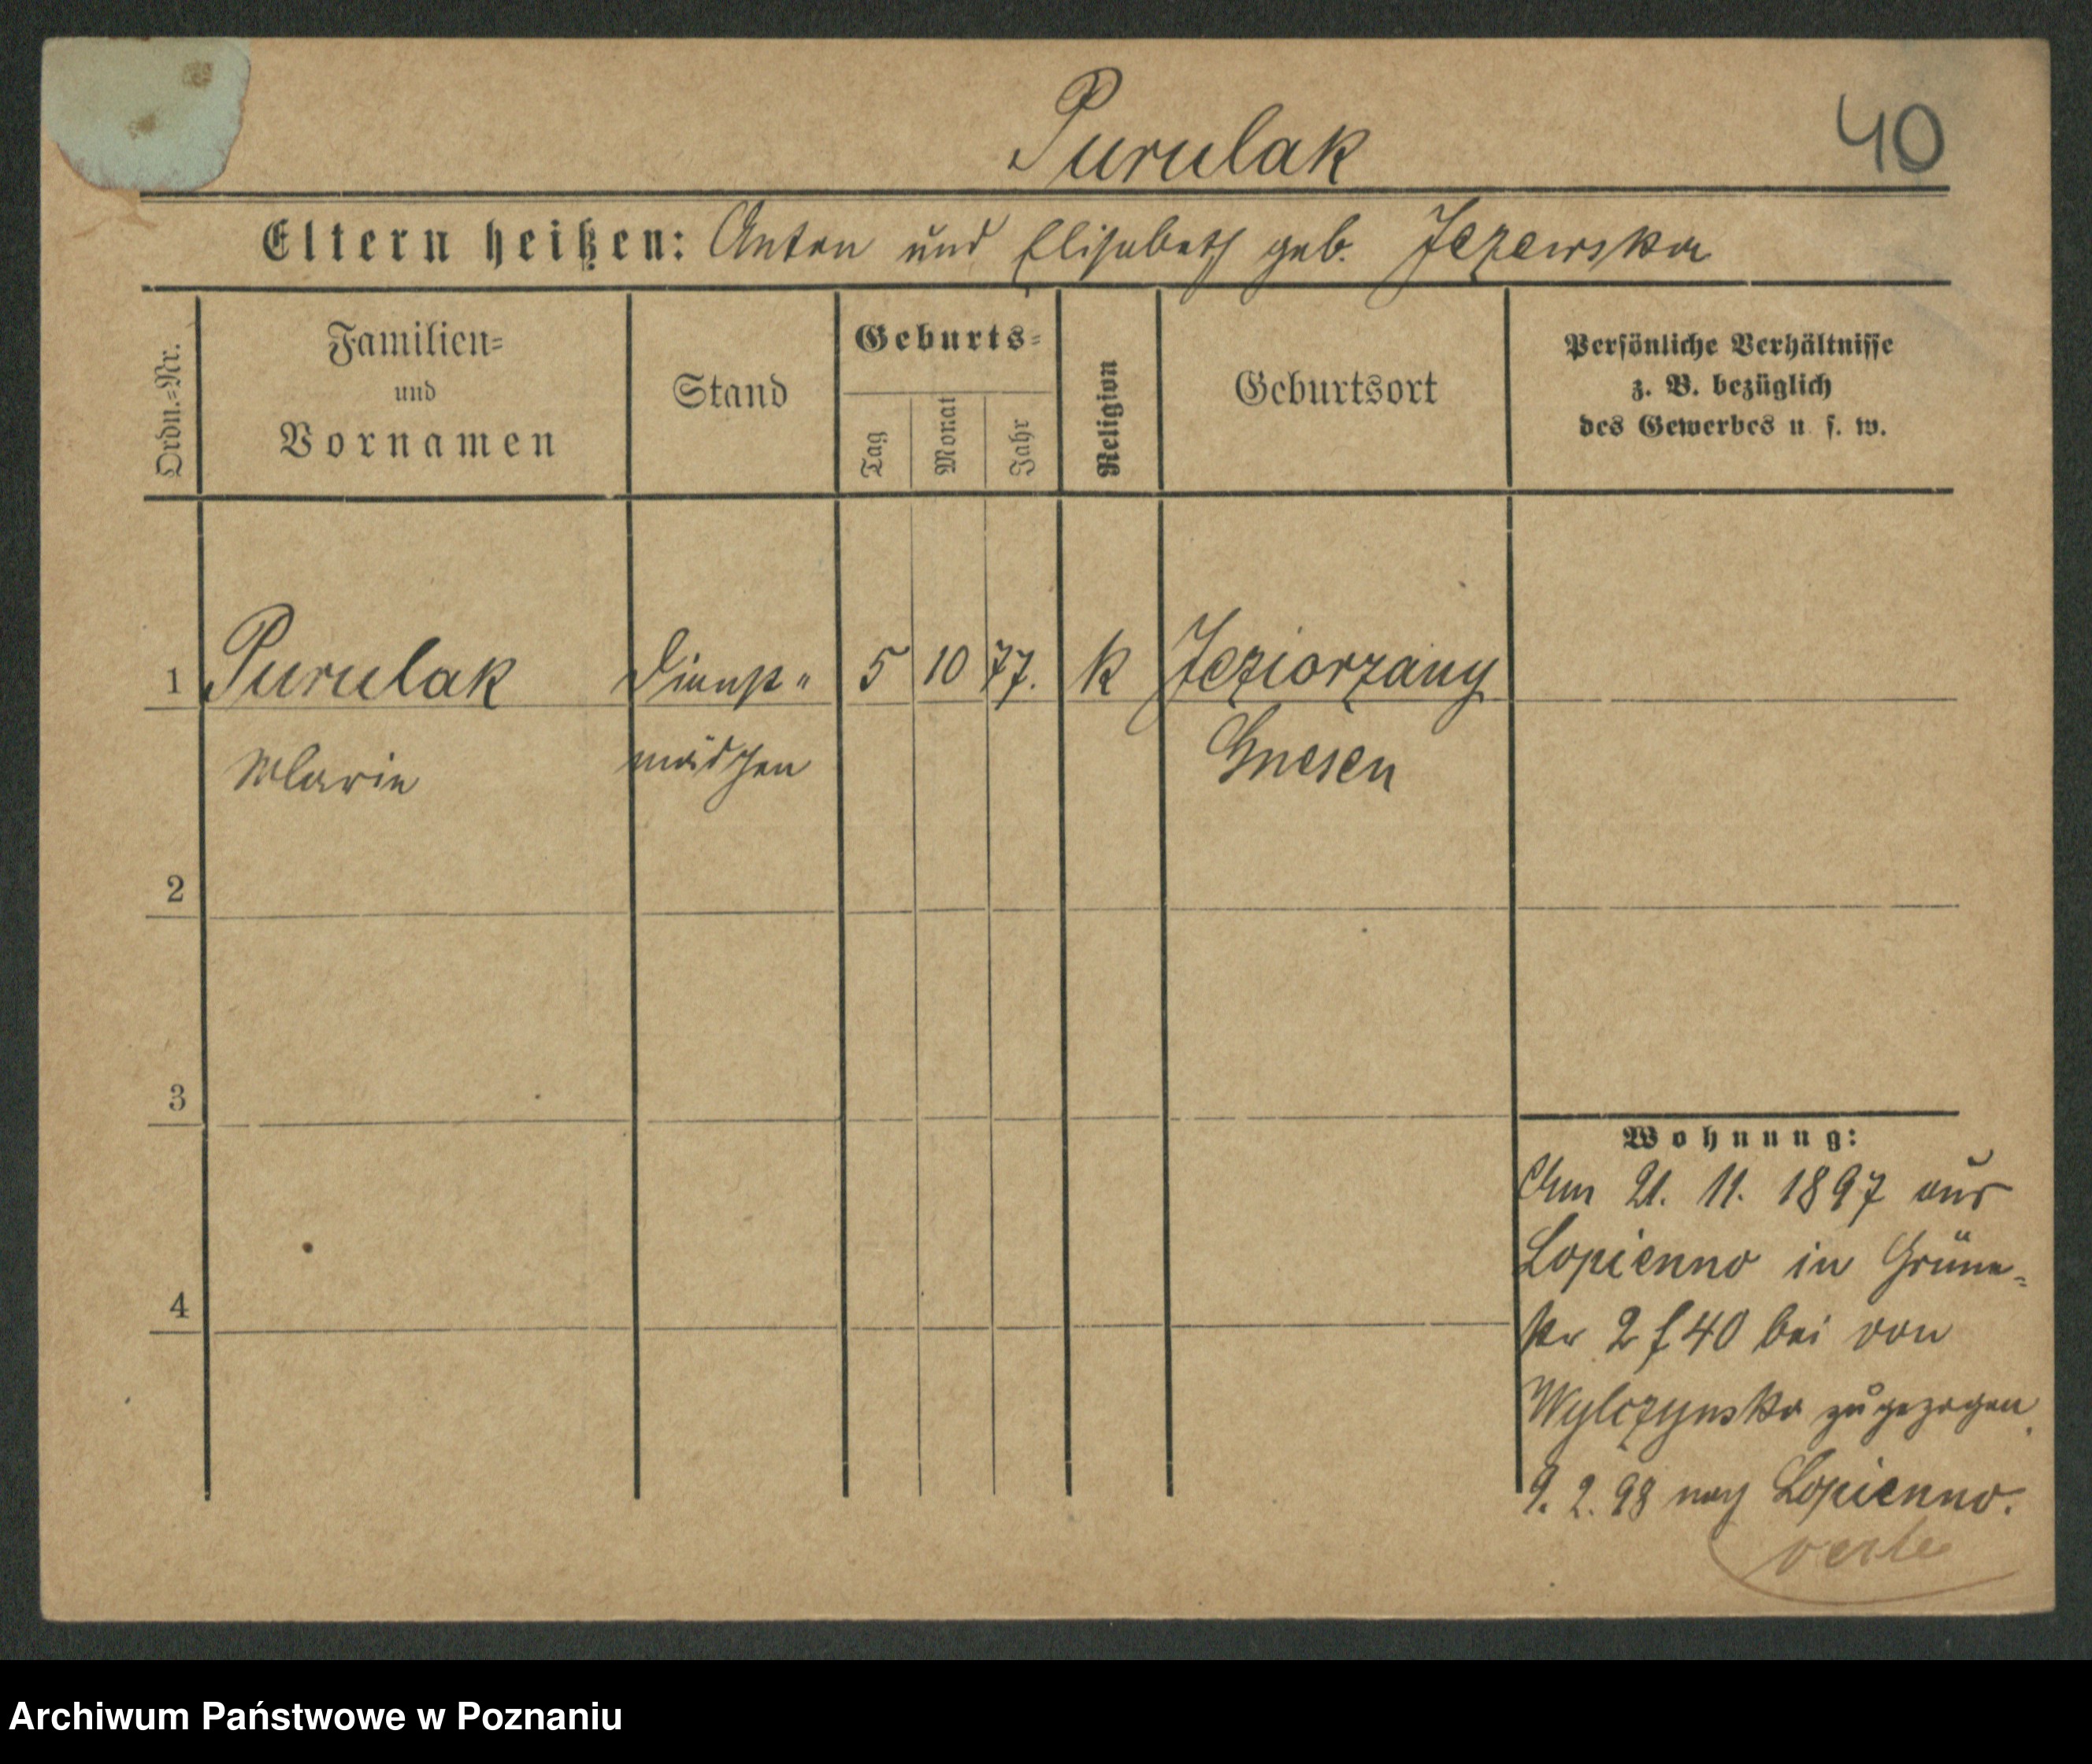 Purulak
40
Eltern heißen: Anton und Elisabeth geb. Jezewska
Ordn.-Nr.
Familien=
und
Vornamen
Stand
Geburts=
Tag
Monat
Jahr
Religion
Geburtsort
Persönliche Verhältnisse
z. B. bezüglich
des Gewerbes u. s. w.
1 Purulak Dienst= 5 10 77. k Jeziorzany
Marie mädchen Gnesen
2
3
4
Wohnung:
Am 21. 11. 1897 aus
Lopienno in Grüne=
str 2 f 40 bei von
Wylczynska zugezogen.
9. 2. 98 nach Lopienno.
Archiwum Państwowe w Poznaniu